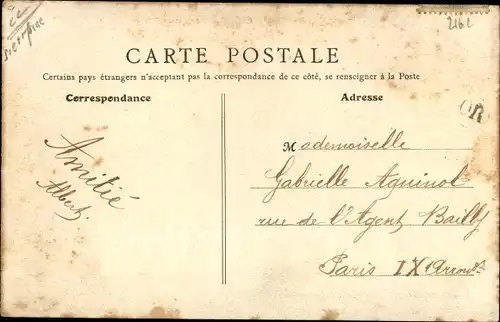 2162
CARTE POSTALE
Certains pays étrangers n'acceptant pas la correspondance de ce côté, se renseigner à la Poste
Correspondance
Adresse
OR
Amitié
Albert.
Mademoiselle
Gabrielle Aquinol
rue de l'Agent Bailly
Paris IX Arrondt